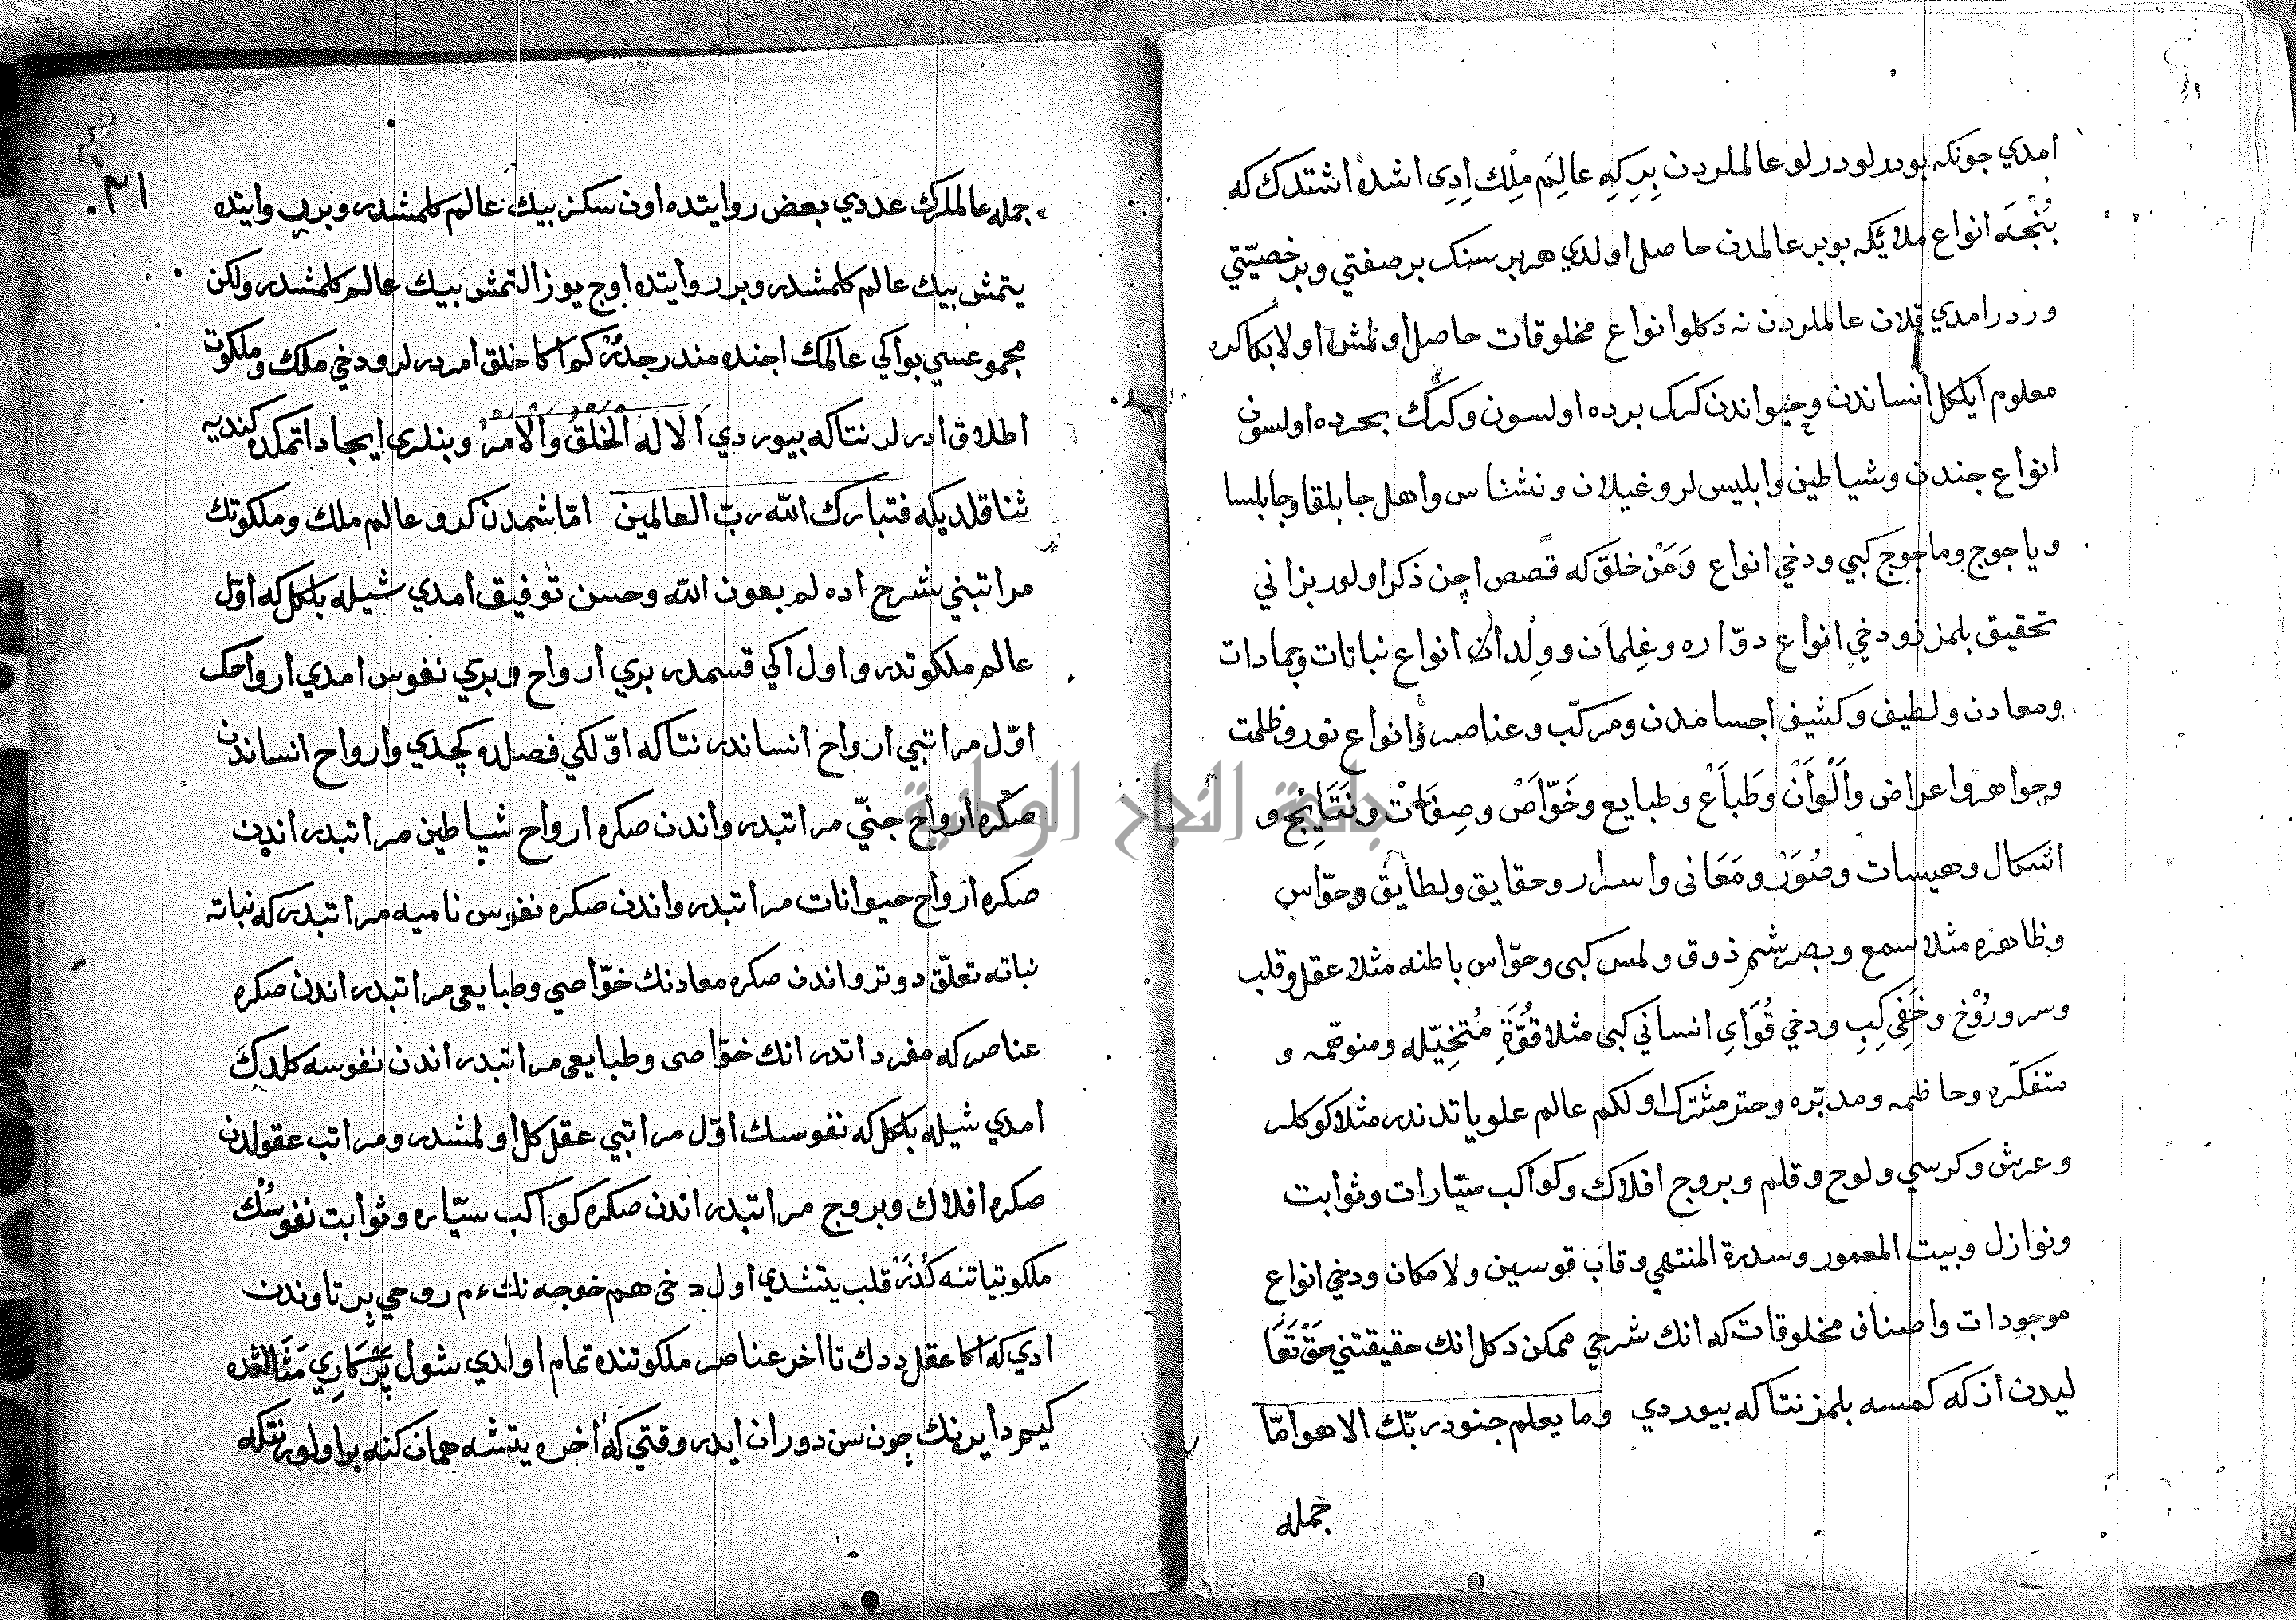 امدي چونكه بودرلودرلو عالملردن بِرِكِهِ عالِمَ مِلْك اِدِى اشده اشتدك كه
بُنْجَه انواع ملائكه بوبر عالمدن حاصل اولدي هر برسنك بر صفتي وبر خصيّتي
وردر امدي قلان عالملردن نه دكلو انواع مخلوقات حاصل اولمش اولا بكا كره
معلوم ايلكل انساندن وحيواندن كرك برده اولسون وكرك بحرده اولسون
انواع جندن وشياطين وابليسلر وغيلان ونشناس واهل جابلقا وجابلسا
وياجوج وماجوج كبي ودخي انواع وَمَنْ خلق كه قصص اچن ذكر اولور بزاني
تحقيق بلمزز ودخي انواع دوّاره وغِلمان وولِدان انواع نباتات وجمادات
ومعادن ولطيف وكشيف اجسامدن ومركّب وعناصر وانواع نور وظلمت
وجواهر واعراض والْوَانْ وطَباَعْ وطبايع وخَوّاَصْ وصِفَاتْ ونَتَايِجْ و
اشكال وهيسات وصُوَرْ ومَعَانى واسرار وحقايق ولطايق وحوّاس
وظاهره مثلا سمع وبصر شم ذوق ولمس كبى وحوّاس باطنه مثلا عقل وقلب
وسر ورُوْحْ وخَفِى كِبِ ودخي قُوَاىِ انساني كبى مثلا قُوَّةِ مُتخيّله ومتوهّمه و
متفكّره وحافظه ومدبّره وحتر مشترك اولكم عالم علوياتدندر مثلا كوكلر
وعرش وكرسي ولوح وقلم وبروج افلاك وكواكب سيّارات وثوابت
ونوازل وبيت المعمور وسدرة المنتهي وقاب قوسين ولا مكان ودخي انواع
موجودات واصناف مخلوقات كه انك شرحي ممكن دكل انك حقيقتني حَقْ تَعَا
ليدن ازكه كمسه بلمز نتاكه بيوردي وما يعلم جنود ربّك الا هو امّا
جمله
٢١
جمله عالملرك عددي بعض روايتده اون سكز بيك عالم كلمشدر وبر روايتده
يتمش بيك عالم كلمشدر وبر روايتده اوچ يوز التمش بيك عالم كلمشدر ولكن
مجموعسي بو ايكي عالمك اجنده مندرجدر كم اكا خلق امر ديرلر ودخي ملك وملكوت
اطلاق ادرلر نتاكه بيوردي الا له الْخَلْقُ والْاَمْرُ وبنلرى ايجاد اتمكده كنديه
ثنا قلديكه فتبارك الله ربّ العالمين امّا شمدن كرو عالم ملك وملكوتك
مراتبني شرح اده لم بعون الله وحسن توفيق امدي شيله بلكل كه اوّل
عالم ملكوتدر واول اكي قسمدر بري ارواح وبري نفوس امدي ارواحك
اوّل مراتبي ارواح انساندر نتاكه اوّلكي فصلده كچدي وارواح انساندن
صكره ارواح جنّي مراتبدر واندن صكره ارواح شياطين مراتبدر اندن
صكره ارواح حيوانات مراتبدر واندن صكره نفوس ناميه مراتبدر كه نباته
نباته تعلّق دوتر واندن صكره معادنك خوّاصي وطبايعى مراتبدر اندن صكره
عناصر كه مفرداتدر انك خوّاصى وطبايعى مراتبدر اندن نفوسه كلدك
امدي شيله بلكل كه نفوسك اوّل مراتبي عقل كل اولمشدر ومراتب عقولدن
صكره افلاك وبروج مراتبدر اندن صكره كواكب سيّاره وثوابت نفوسُنْك
ملكوتياتنه كُدَرْ قلب يتشدي اول دخى هم خوجه نك روحي پرتاوندن
ادي كه اكا عقل ددك تا اخر عناصر ملكوتنده تمام اولدي شول پَرْكَارِي مَثَالنده
كيم دايرنك چون سن دوران ايدر وقتي كه اخره يتشه همان كنه بر اولور نتكه